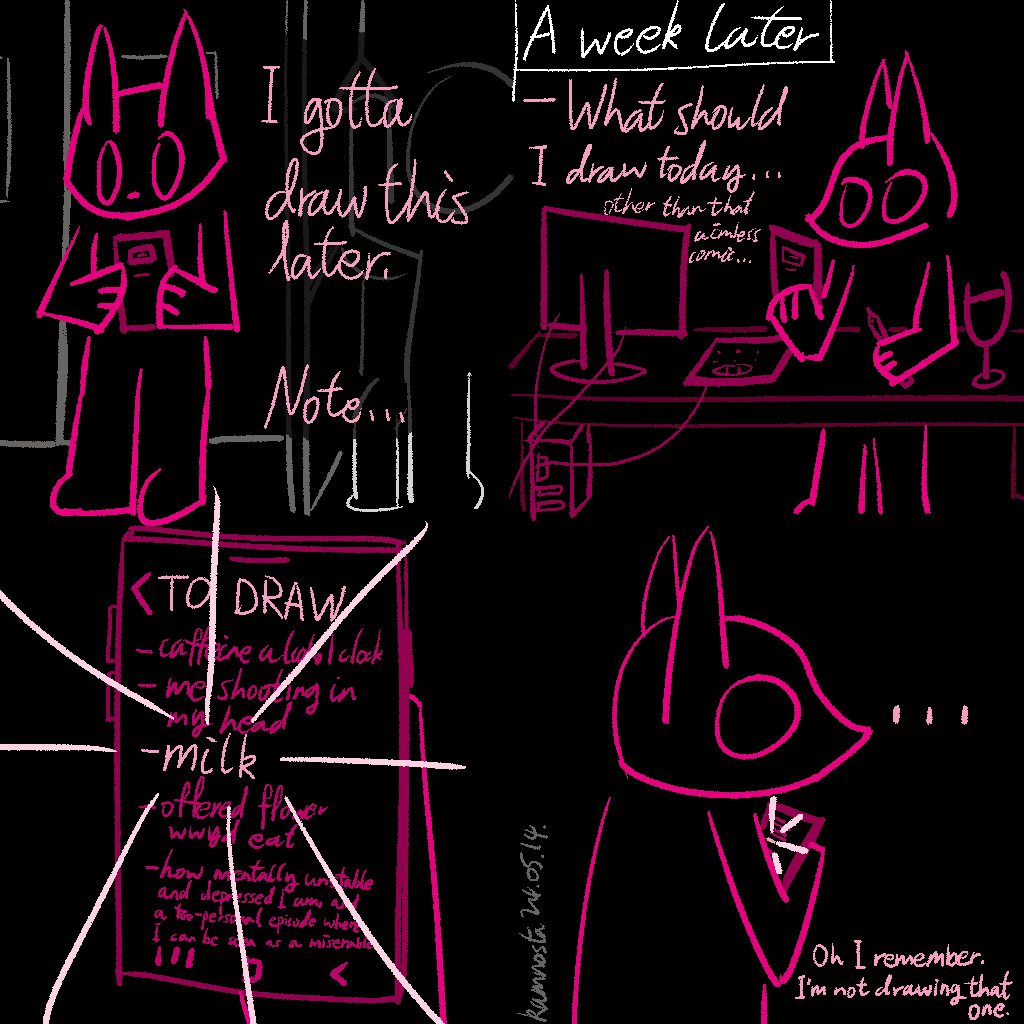 I gotta
draw this
later.
Note...
A week later
- What should
I draw today...
other than that
aimless
comic...
< TO DRAW
- caffeine alcohol clock
- me shooting in
my head
- milk
- offered flower
wwyd eat
- how mentally unstable
and depressed I am, and
a too-personal episode where
I can be seen as a miserable
...
Oh I remember.
I'm not drawing that
one.
kamnosta 24.05.14.